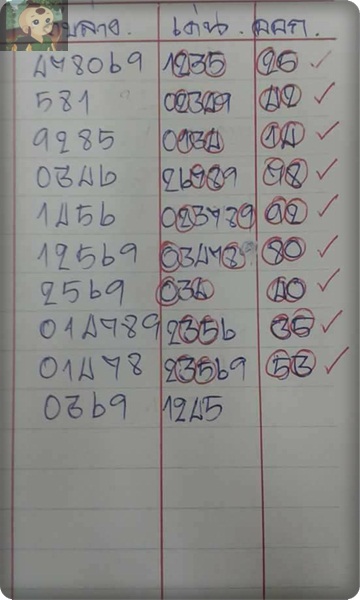 ล่าง. เด่น. ออก.
478069 1235 25 ✓
581 02349 42 ✓
9285 0134 14 ✓
0346 26989 98 ✓
1456 023789 92 ✓
12569 03478 80 ✓
2569 034 40 ✓
014789 2356 35 ✓
01478 23569 53 ✓
0369 1245